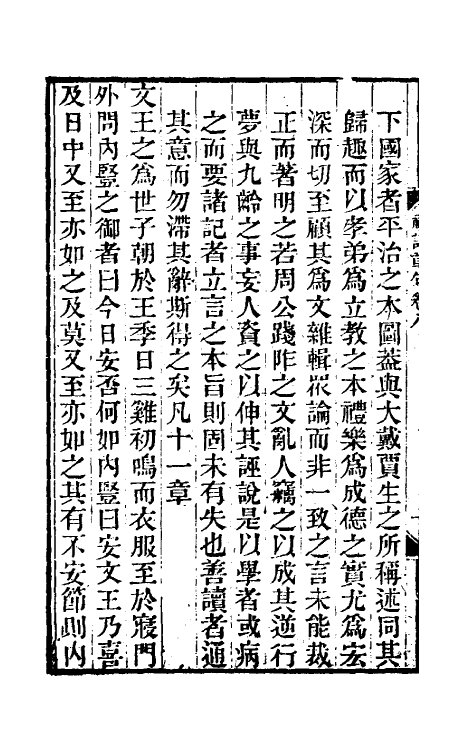 下國家者平治之本圖葢與大戴賈生之所稱述同其
歸趣而以孝弟為立教之本禮樂為成德之實尤為宏
深而切至顧其為文雜輯眾論而非一致之言未能裁
正而著明之若周公踐阼之文亂人竊之以成其逆行
夢與九齡之事妄人資之以伸其誣說是以學者或病
之而要諸記者立言之本旨則固未有失也善讀者通
其意而勿滯其辭斯得之矣凡十一章
文王之為世子朝於王季日三雞初鳴而衣服至於寢門
外問內豎之御者曰今日安否何如內豎曰安文王乃喜
及日中又至亦如之及莫又至亦如之其有不安節則內